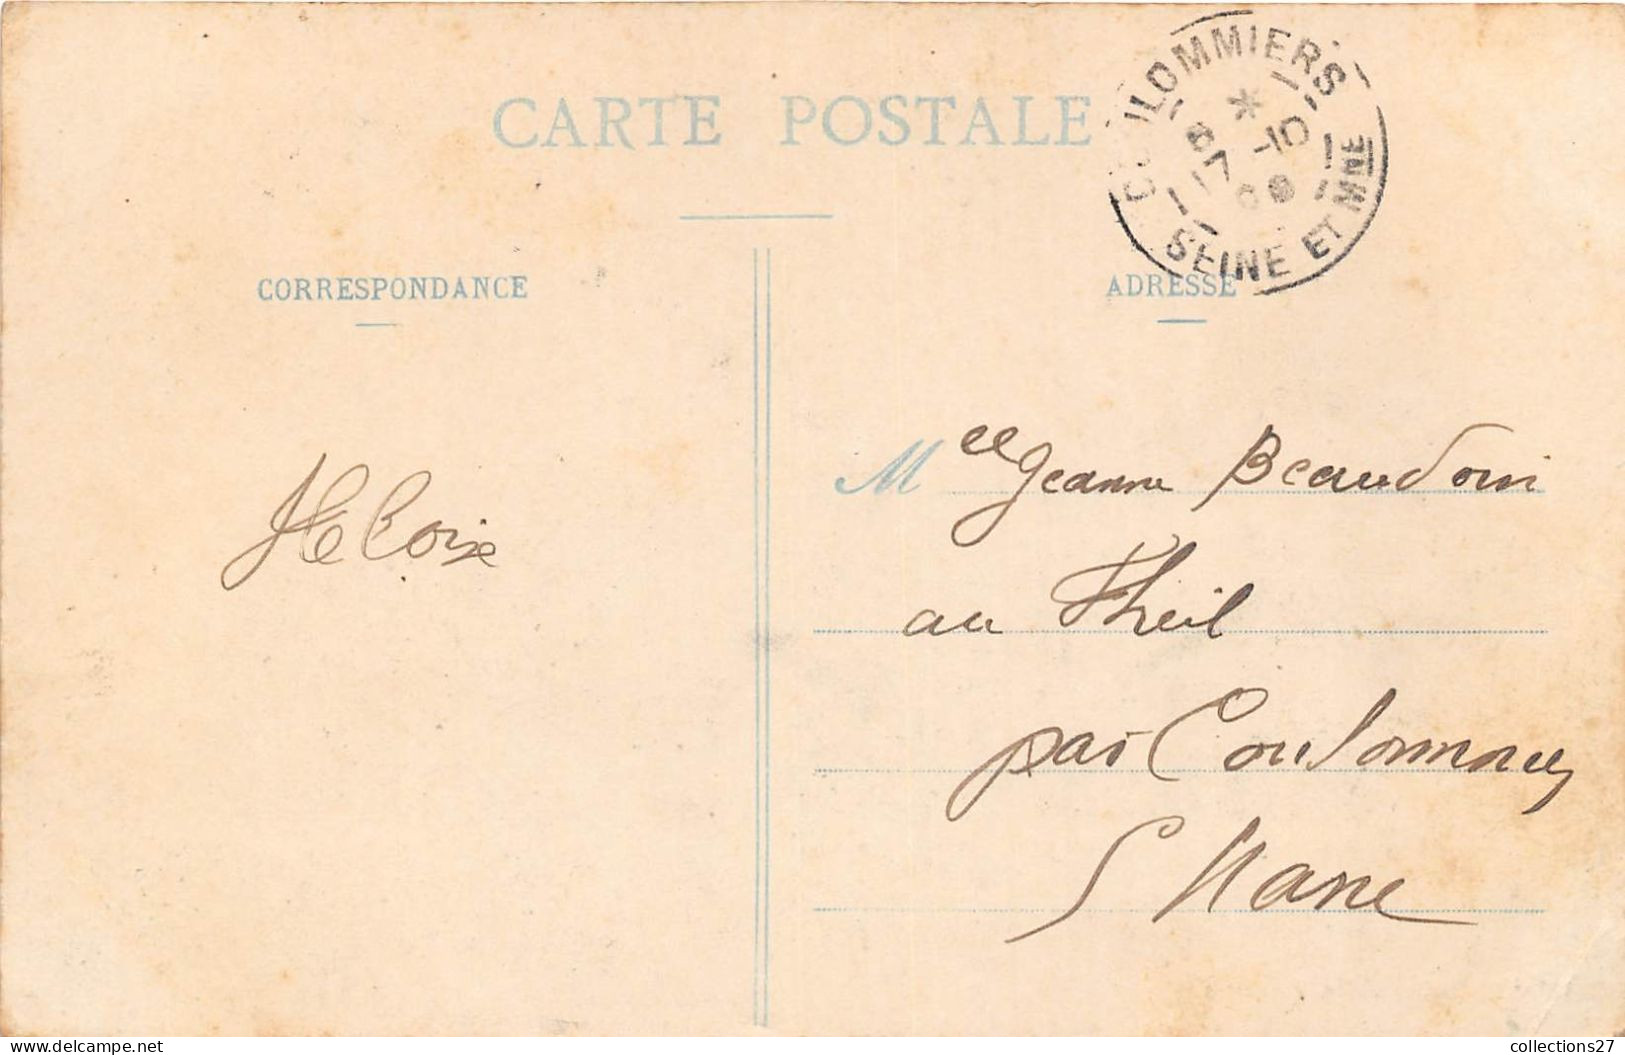 CARTE POSTALE
COULOMMIERS
8 *
17 -10
08
SEINE ET MNE
CORRESPONDANCE
ADRESSE
Héloïse
Melle Jeanne Beaudoin
au Theil
par Coulommiers
S Marne
www.delcampe.net
collections27